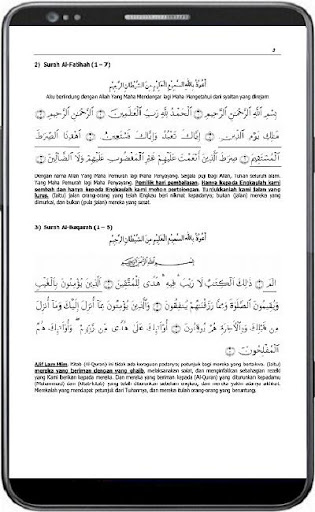 3
2) Surah Al-Fatihah (1 – 7)
أَعُوْذُ بِاللهِ السَّمِيْعِ الْعَلِيْمِ مِنَ الشَّيْطَانِ الرَّجِيْمِ
Aku berlindung dengan Allah Yang Maha Mendengar lagi Maha Mengetahui dari syaitan yang direjam
بِسْمِ اللَّهِ الرَّحْمَٰنِ الرَّحِيمِ ۝ الْحَمْدُ لِلَّهِ رَبِّ الْعَالَمِينَ ۝ الرَّحْمَٰنِ الرَّحِيمِ ۝
مَالِكِ يَوْمِ الدِّينِ ۝ إِيَّاكَ نَعْبُدُ وَإِيَّاكَ نَسْتَعِينُ ۝ اهْدِنَا الصِّرَاطَ
الْمُسْتَقِيمَ ۝ صِرَاطَ الَّذِينَ أَنْعَمْتَ عَلَيْهِمْ غَيْرِ الْمَغْضُوبِ عَلَيْهِمْ وَلَا الضَّالِّينَ ۝
Dengan nama Allah Yang Maha Pemurah lagi Maha Penyayang. Segala puji Bagi Allah, Tuhan seluruh alam.
Yang Maha Pemurah lagi Maha Penyayang. Pemilik hari pembalasan. Hanya kepada Engkaulah kami
sembah dan hanya kepada Engkaulah kami mohon pertolongan. Tunjukkanlah kami jalan yang
lurus. (Iaitu) jalan orang-orang yang telah Engkau beri nikmat kepadanya; bukan (jalan) mereka yang
dimurkai, dan bukan (pula jalan) mereka yang sesat.
3) Surah Al-Baqarah (1 – 5)
أَعُوْذُ بِاللهِ السَّمِيْعِ الْعَلِيْمِ مِنَ الشَّيْطَانِ الرَّجِيْمِ
بِسْمِ اللَّهِ الرَّحْمَٰنِ الرَّحِيمِ
الم ۝ ذَٰلِكَ الْكِتَابُ لَا رَيْبَ ۛ فِيهِ ۛ هُدًى لِّلْمُتَّقِينَ ۝ الَّذِينَ يُؤْمِنُونَ بِالْغَيْبِ
وَيُقِيمُونَ الصَّلَوٰةَ وَمِمَّا رَزَقْنَاهُمْ يُنفِقُونَ ۝ وَالَّذِينَ يُؤْمِنُونَ بِمَا أُنزِلَ إِلَيْكَ وَمَا أُنزِلَ
مِن قَبْلِكَ وَبِالْآخِرَةِ هُمْ يُوقِنُونَ ۝ أُولَٰئِكَ عَلَىٰ هُدًى مِّن رَّبِّهِمْ ۖ وَأُولَٰئِكَ هُمُ
الْمُفْلِحُونَ ۝
Alif Lam Mim. Kitab (Al-Quran) ini tidak ada keraguan padanya; petunjuk bagi mereka yang bertakwa. (Iaitu)
mereka yang beriman dengan yang ghaib, melaksanakan salat, dan menginfakkan sebahagian rezeki
yang Kami berikan kepada mereka. Dan mereka yang beriman kepada (Al-Quran) yang diturunkan kepadamu
(Muhammad) dan (Kitab-kitab) yang telah diturunkan sebelum engkau, dan mereka yakin adanya akhirat.
Merekalah yang mendapat petunjuk dari Tuhannya, dan mereka itulah orang-orang yang beruntung.